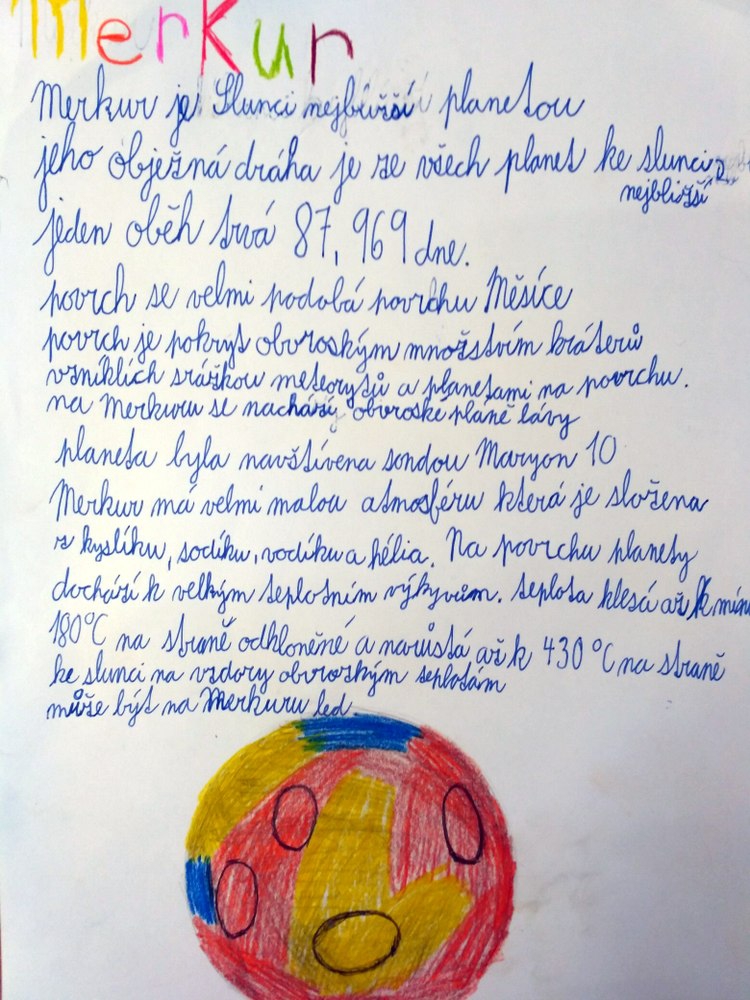 Merkur
Merkur je Slunci nejbížší planetou
jeho obježná dráha je ze všech planet ke slunci
nejbližší
jeden oběh trvá 87, 969 dne.
povrch se velmi podobá povrchu Měsíce
povrch je pokryt obvroským množstvím kráterů
vzniklích srážkou meteorytů a planetami na povrchu.
na Merkuru se nachází obvroské pláně lávy
planeta byla navštívena sondou Maryon 10
Merkur má velmi malou atmosféru která je složena
z kyslíku, sodíku, vodíku a hélia. Na povrchu planety
dochází k velkým teplotním výkyvům. teplota klesá až k mínu
180°C na straně odkloněné a narůstá až k 430°C na straně
ke slunci na vzdory obvroským teplotám
může být na Merkuru led